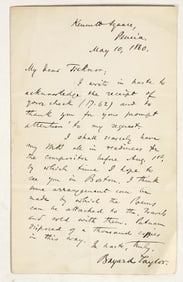 Kennett Square,
Penna.
May 10, 1860.
My dear Ticknor,
I write in haste to
acknowledge the receipt of
your check (17.62) and to
thank you for your prompt
attention to my request.
I shall scarcely have
my MS. all in readiness for
the compositor before Aug. 1st,
by which time I hope to
see you in Boston. I think
some arrangement can be
made by which the Poems
can be attached to the Travels
and sold with them. Putnam
disposed of a thousand copies
in this way. In haste, truly,
Bayard Taylor.